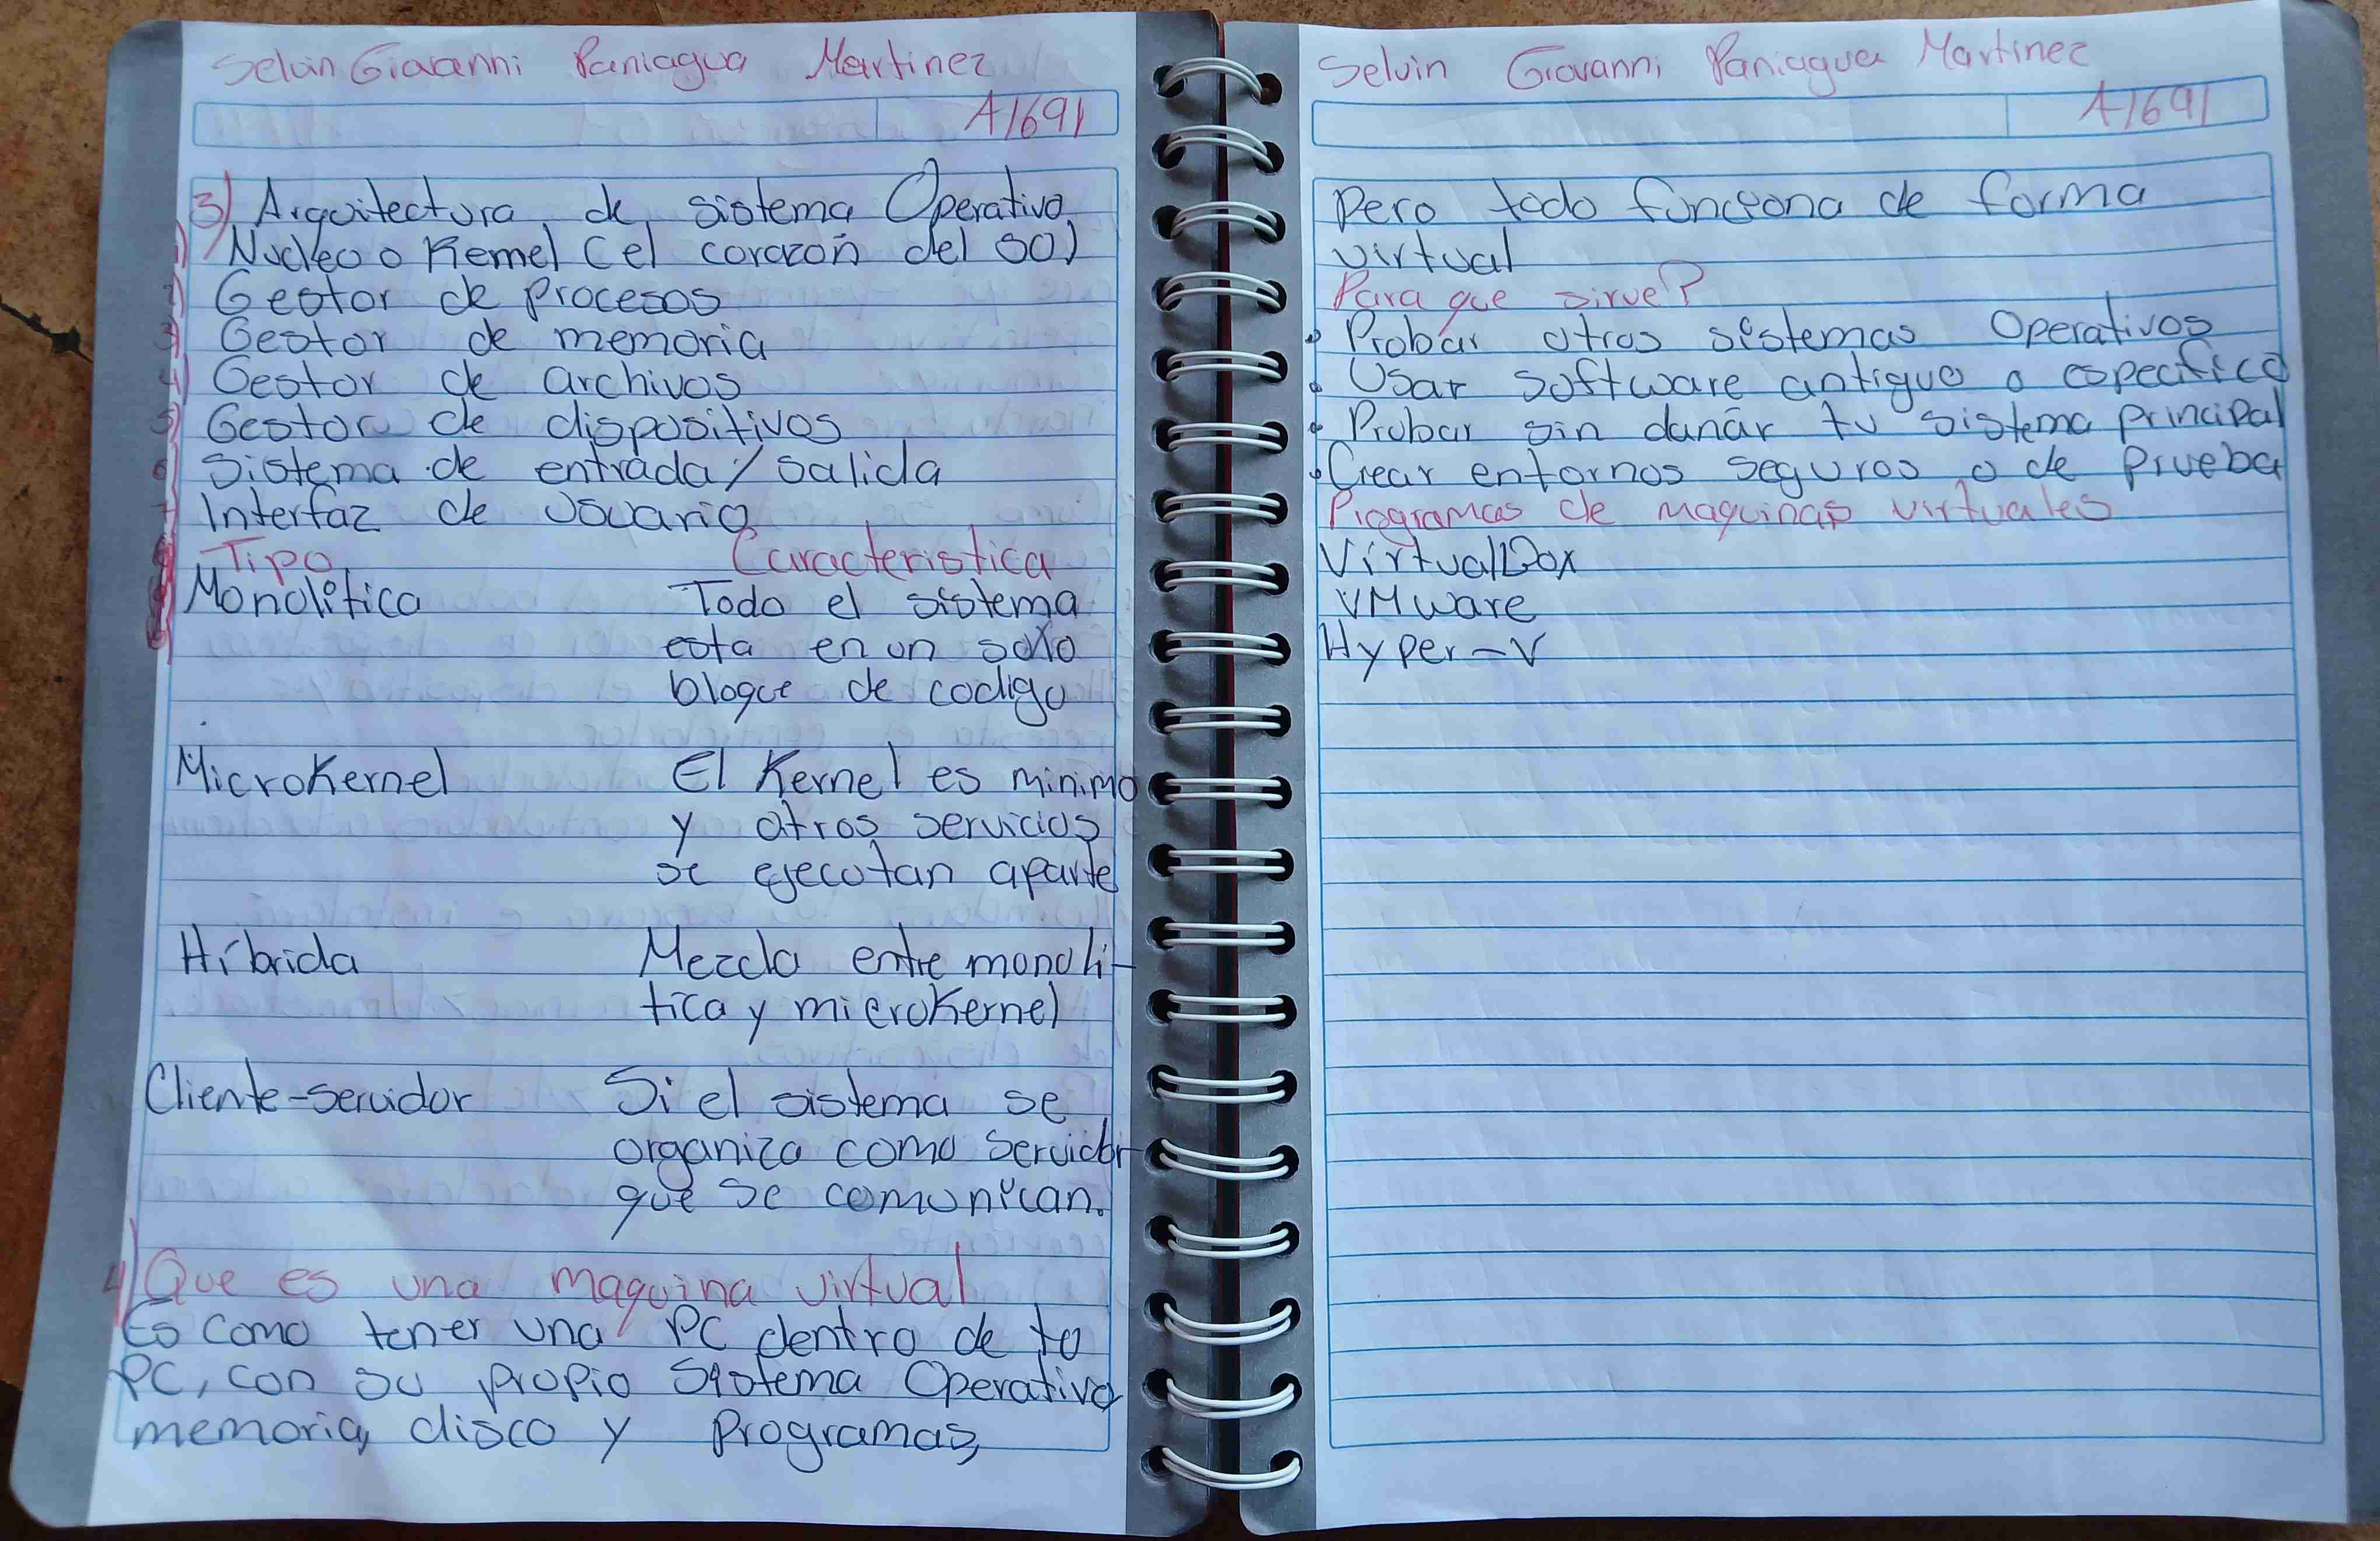 Selvin Giovanni Paniagua Martinez
A1691
3) Arquitectura de sistema Operativo
1) Nucleo o Kernel (el corazon del SO)
2) Gestor de procesos
3) Gestor de memoria
4) Gestor de archivos
5) Gestor de dispositivos
6) Sistema de entrada/salida
7) Interfaz de usuario
Tipo Caracteristica
Monolitica Todo el sistema
esta en un solo
bloque de codigo
MicroKernel El Kernel es minimo
y otros servicios
se ejecutan aparte
Híbrida Mezcla entre monoli-
tica y microkernel
Cliente-servidor Si el sistema se
organiza como servidor
que se comunican.
4) Que es una maquina virtual
Es como tener una PC dentro de tu
PC, con su propio Sistema Operativo
memoria, disco y programas,
Selvin Giovanni Paniagua Martinez
A1691
Pero todo funciona de forma
virtual
Para que sirve?
• Probar otros sistemas Operativos
• Usar software antiguo o especifico
• Probar sin danar tu sistema principal
• Crear entornos seguros o de prueba
Programas de maquinas virtuales
VirtualBox
VMware
Hyper-V